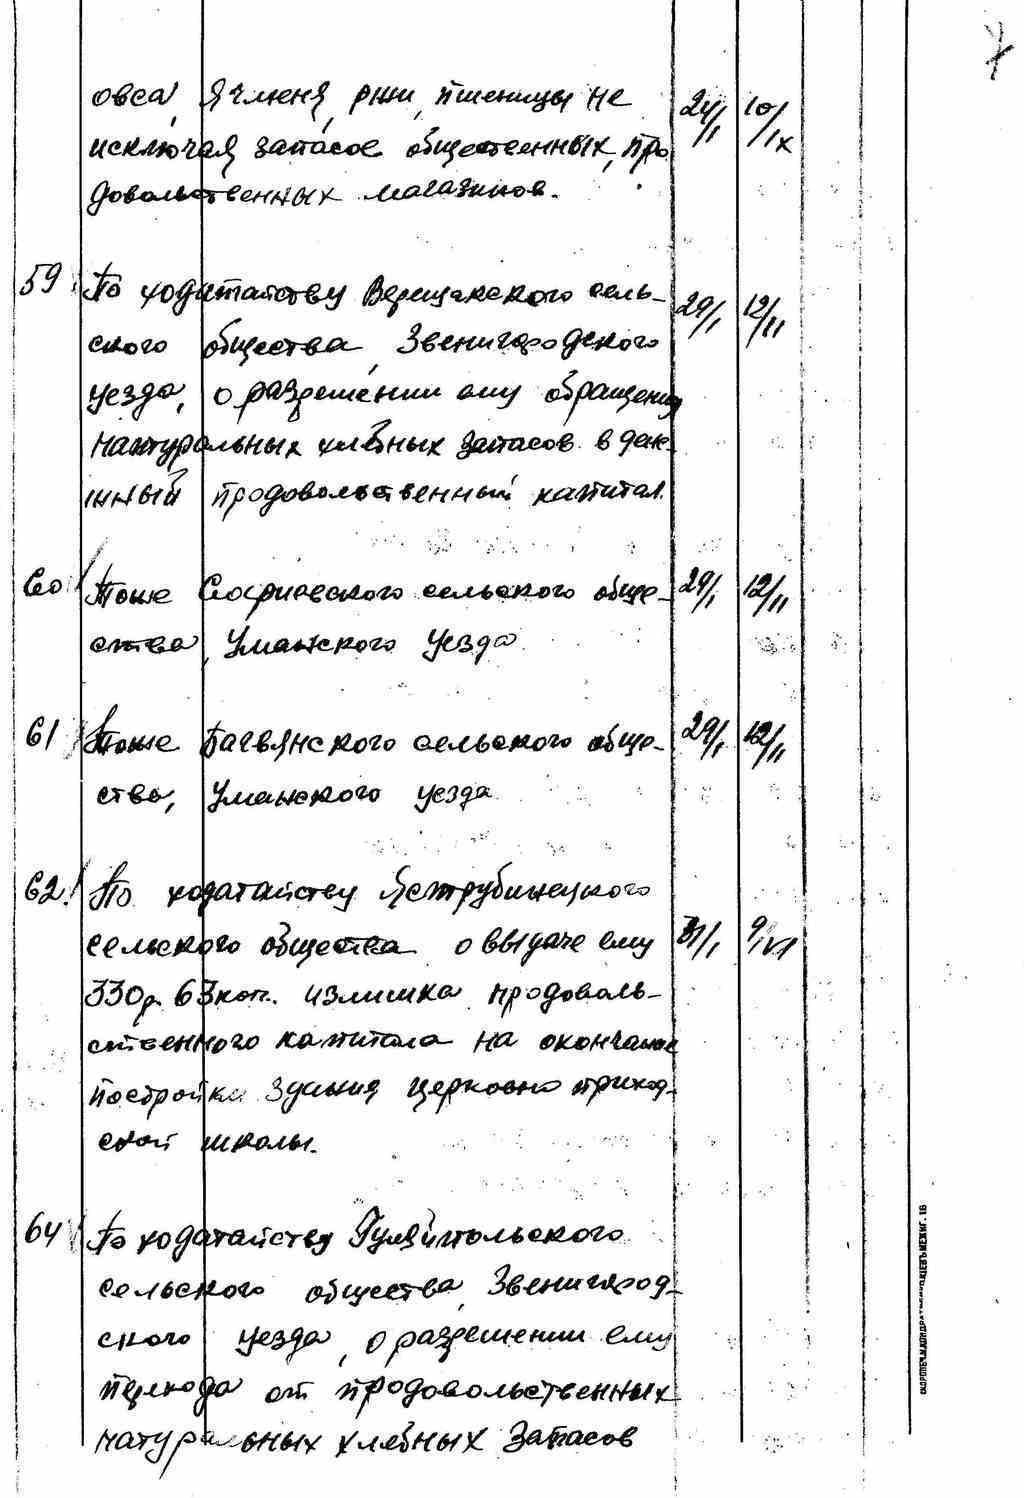 7
овса, ячменя, ржи, пшеницы не 24/I 10/IX
исключая запасов общественных, про
довольственных магазинов.
59 По ходатайству Верещакского сель- 29/I 12/II
ского общества, Звенигородского
уезда, о разрешении ему обращения
натуральных хлебных запасов в денеж-
ный продовольственный капитал.
60 Тоже сельского обще- 29/I 12/II
ства, Уманского уезда
61 Тоже Багвянского сельского обще- 29/I 12/II
ства, Уманского уезда
62. По ходатайству Яструбинецкого
сельского общества о выдаче ему 31/I 9/VI
330р. 63коп. излишка продоволь-
ственного капитала на окончание
постройки здания церковно приход-
ской школы.
64 По ходатайству Гуляйпольского
сельского общества, Звенигород-
ского уезда, о разрешении ему
перехода от продовольственных
натуральных хлебных запасов